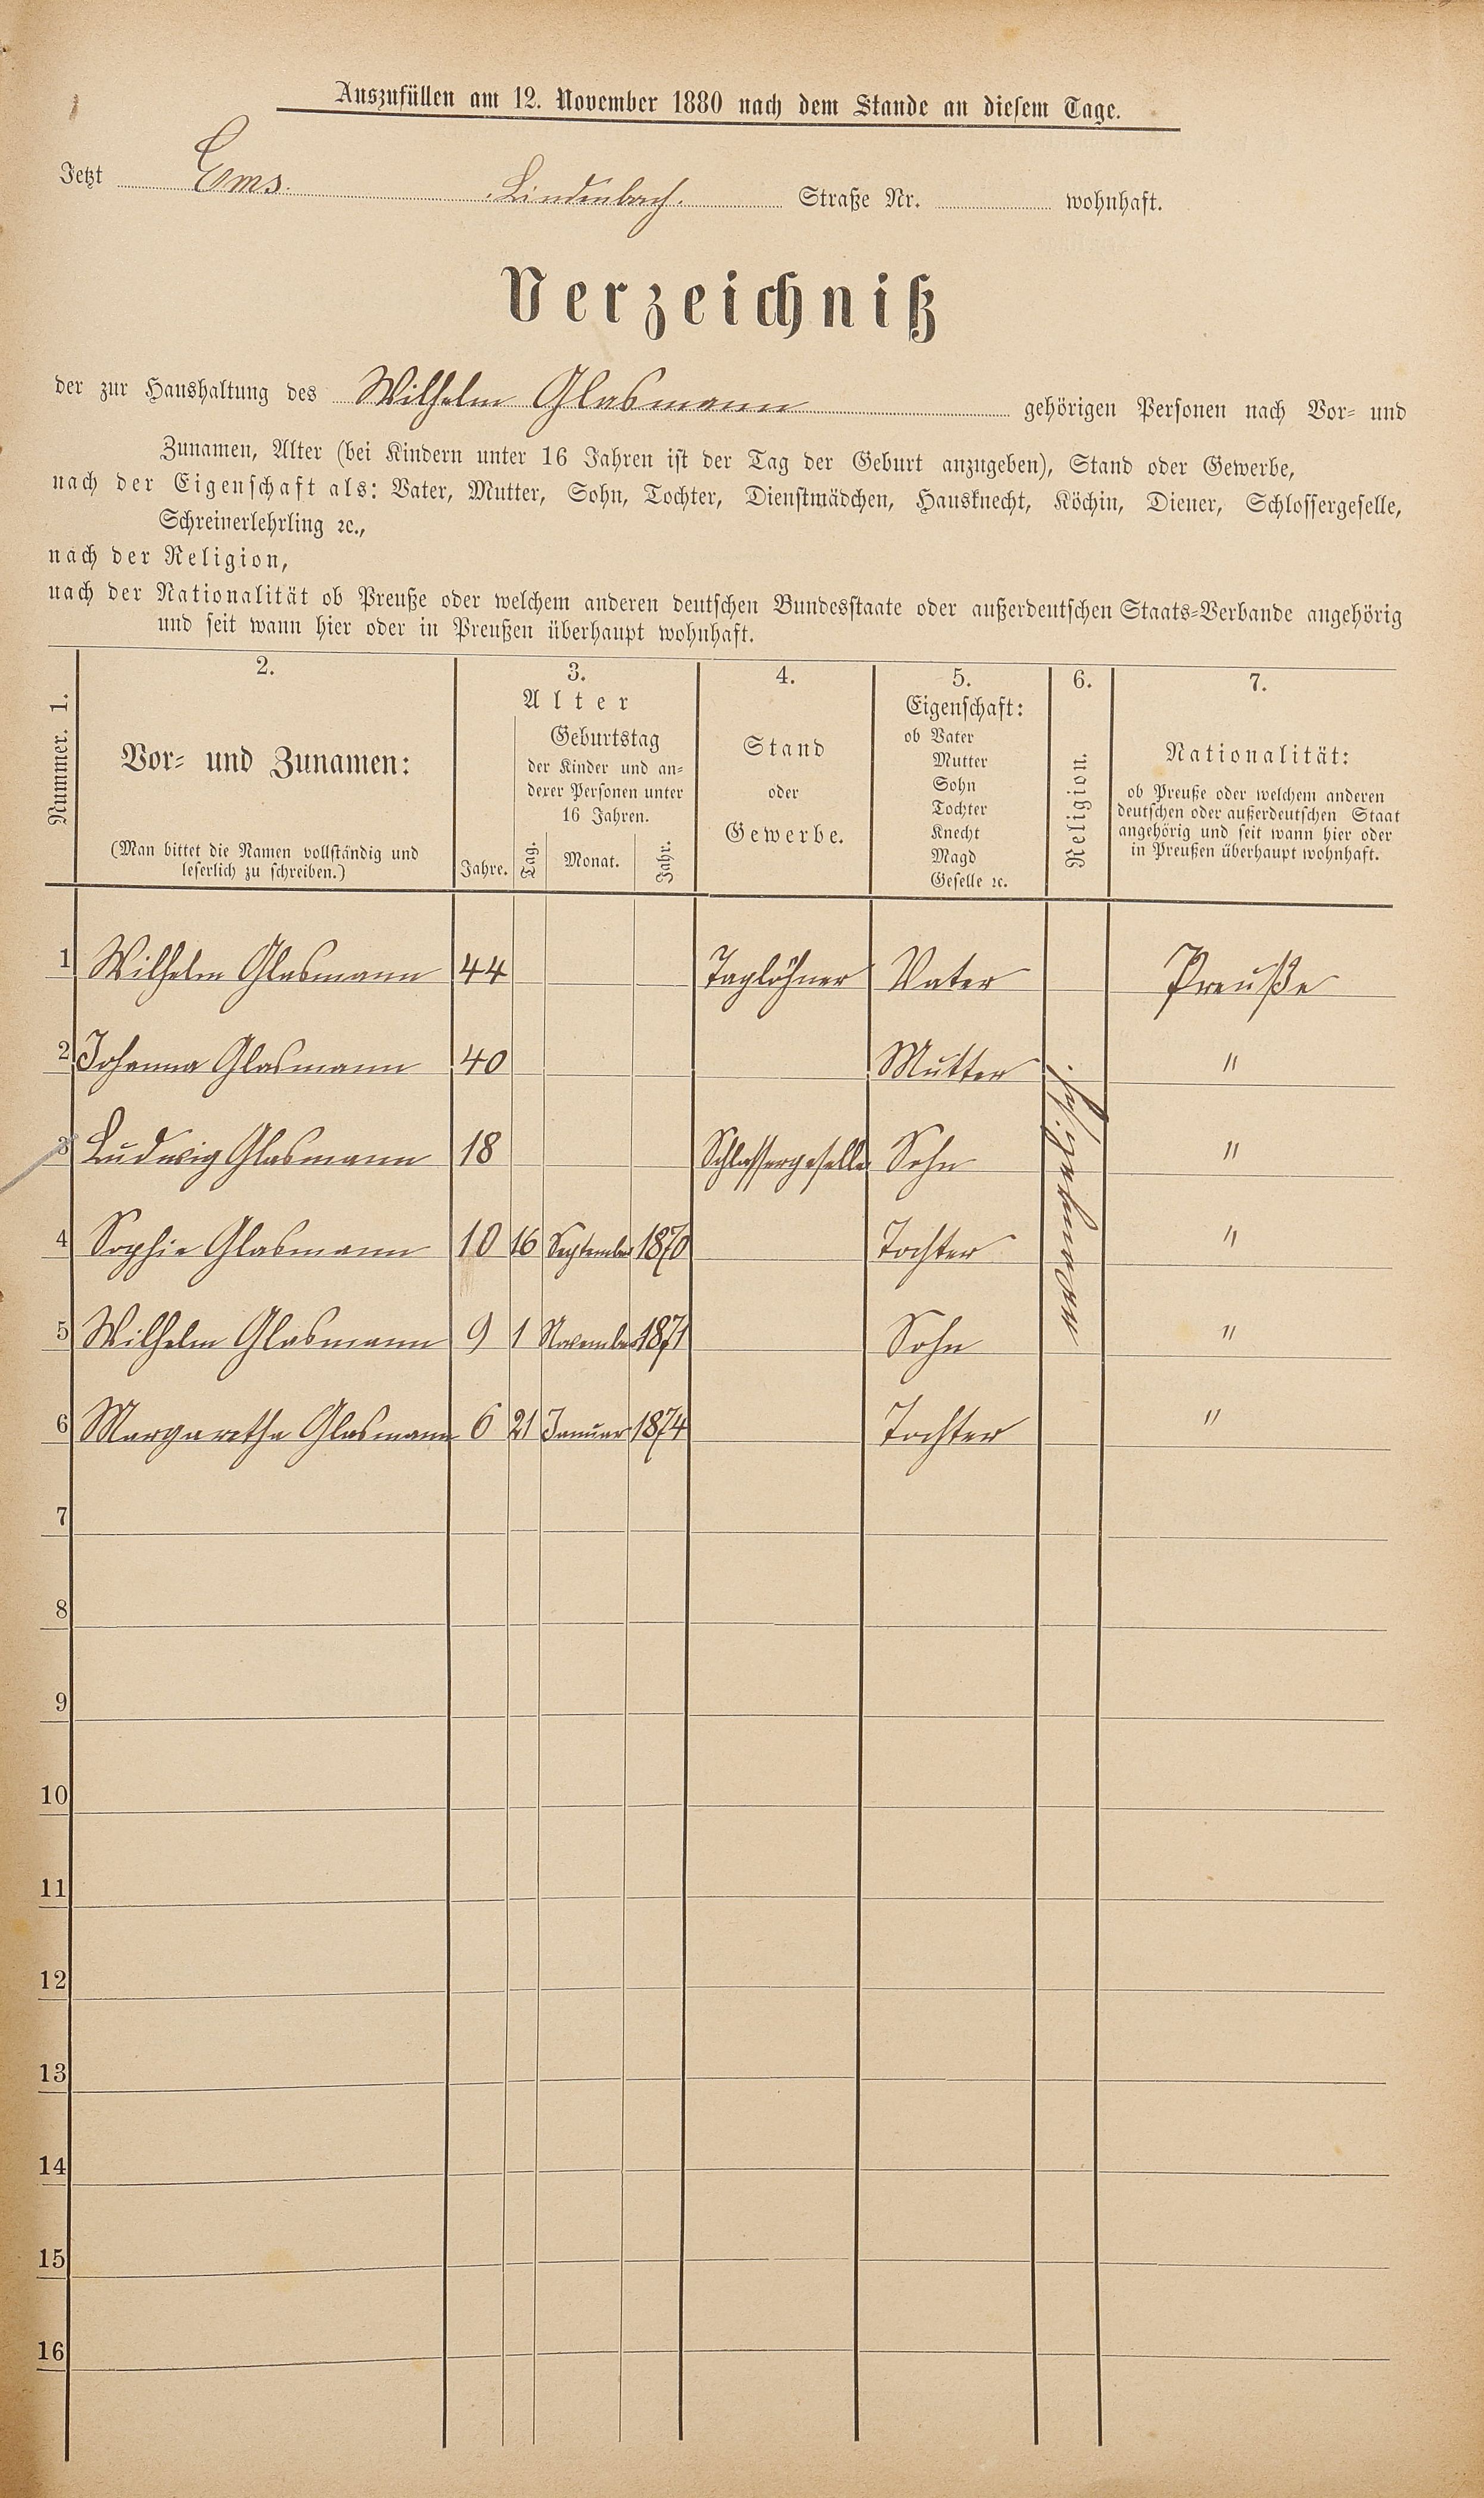 Auszufüllen am 12. November 1880 nach dem Stande an diesem Tage.
Jetzt Ems. Lindenbach. Straße Nr. wohnhaft.
Verzeichniß
der zur Haushaltung des Wilhelm Glasmann gehörigen Personen nach Vor- und
Zunamen, Alter (bei Kindern unter 16 Jahren ist der Tag der Geburt anzugeben), Stand oder Gewerbe,
nach der Eigenschaft als: Vater, Mutter, Sohn, Tochter, Dienstmädchen, Hausknecht, Köchin, Diener, Schlossergeselle,
Schreinerlehrling ꝛc.,
nach der Religion,
nach der Nationalität ob Preuße oder welchem anderen deutschen Bundesstaate oder außerdeutschen Staats-Verbande angehörig
und seit wann hier oder in Preußen überhaupt wohnhaft.
Nummer. 1.
2.
Vor- und Zunamen:
(Man bittet die Namen vollständig und
leserlich zu schreiben.)
3.
Alter
Geburtstag
der Kinder und an-
derer Personen unter
16 Jahren.
Jahre. Tag. Monat. Jahr.
4.
Stand
oder
Gewerbe.
5.
Eigenschaft:
ob Vater
Mutter
Sohn
Tochter
Knecht
Magd
Geselle ꝛc.
6.
Religion.
7.
Nationalität:
ob Preuße oder welchem anderen
deutschen oder außerdeutschen Staat
angehörig und seit wann hier oder
in Preußen überhaupt wohnhaft.
1 Wilhelm Glasmann 44 Taglöhner Vater Preuße
2 Johanna Glasmann 40 Mutter "
3 Ludwig Glasmann 18 Schlossergeselle Sohn "
4 Sophie Glasmann 10 16 September 1870 Tochter "
5 Wilhelm Glasmann 9 1 November 1871 Sohn "
6 Margaretha Glasmann 6 21 Januar 1874 Tochter "
evangelisch.
7
8
9
10
11
12
13
14
15
16